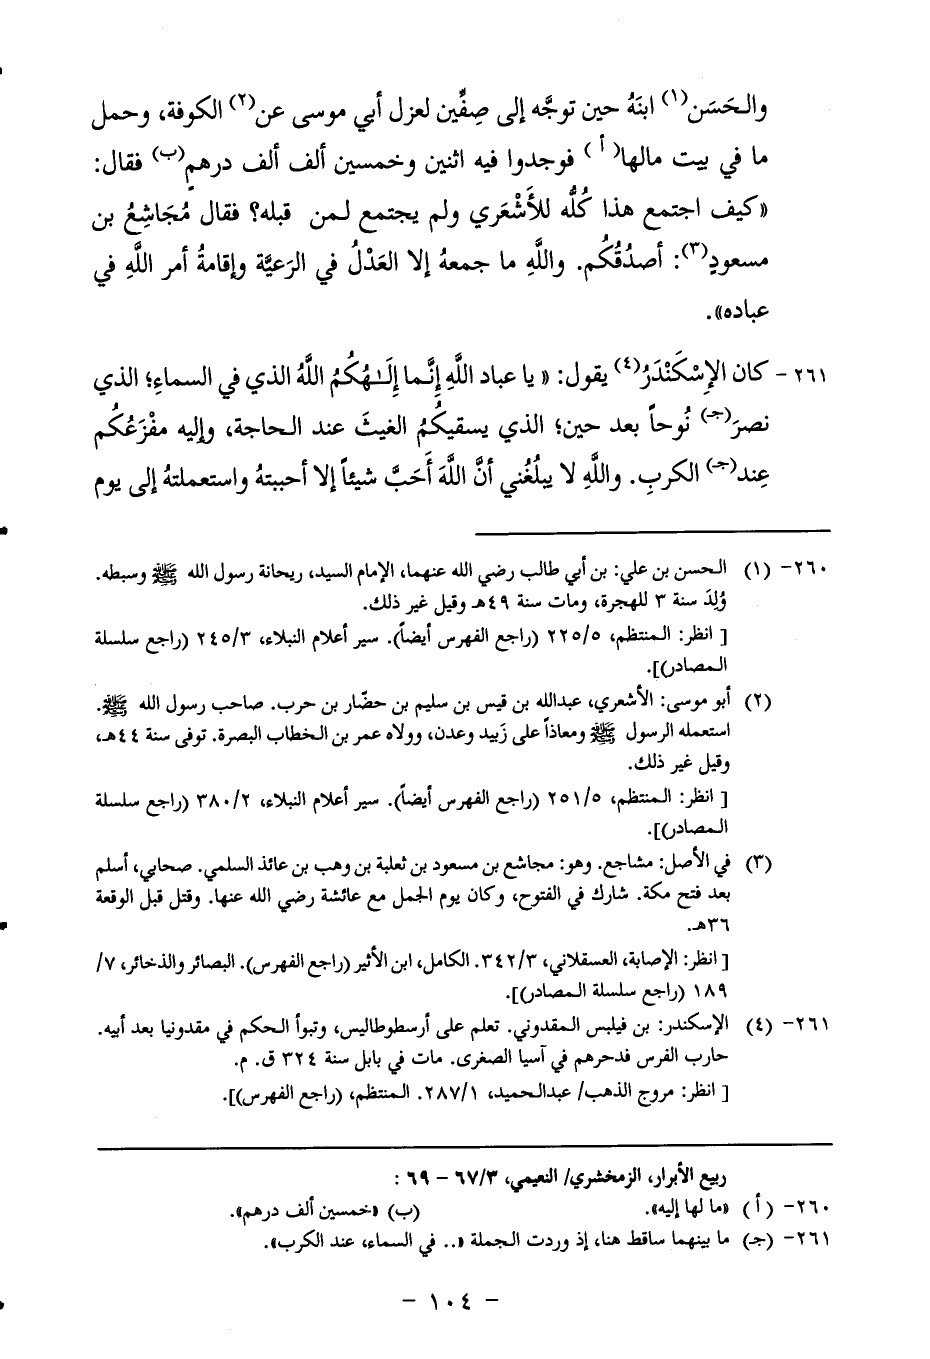 والحَسَن(١) ابنَهُ حين توجَّه إلى صِفِّين لعزل أبي موسى عن(٢) الكوفة، وحمل
ما في بيت مالها(أ) فوجدوا فيه اثنين وخمسين ألف ألف درهمٍ(ب) فقال:
«كيف اجتمع هذا كُلُّه للأَشْعَري ولم يجتمع لمن قبله؟ فقال مُجَاشِعُ بن
مسعودٍ(٣): أصدُقُكُم. واللَّهِ ما جمعهُ إلا العَدْلُ في الرَعيَّة وإقامةُ أمر اللَّهِ في
عباده».
٢٦١ - كان الإِسْكَنْدَرُ(٤) يقول: «يا عباد اللَّهِ إِنَّما إِلَـٰهُكُمُ اللَّهُ الذي في السماءِ؛ الذي
نصرَ(جـ) نُوحاً بعد حين؛ الذي يسقيكُمُ الغيثَ عند الحاجة، وإليه مفْزَعُكُم
عِند(جـ) الكربِ. واللَّهِ لا يبلُغُني أنَّ اللَّهَ أَحَبَّ شيئاً إلا أحببتهُ واستعملتهُ إلى يوم
٢٦٠- (١) الحسن بن علي: بن أبي طالب رضي الله عنهما، الإمام السيد، ريحانة رسول الله ﷺ وسبطه.
وُلِدَ سنة ٣ للهجرة، ومات سنة ٤٩هـ وقيل غير ذلك.
[ انظر: المنتظم، ٢٢٥/٥ (راجع الفهرس أيضاً). سير أعلام النبلاء، ٢٤٥/٣ (راجع سلسلة
المصادر)].
(٢) أبو موسى: الأشعري، عبدالله بن قيس بن سليم بن حضّار بن حرب. صاحب رسول الله ﷺ.
استعمله الرسول ﷺ ومعاذاً على زَبيد وعدن، وولاه عمر بن الخطاب البصرة. توفى سنة ٤٤هـ،
وقيل غير ذلك.
[ انظر: المنتظم، ٢٥١/٥ (راجع الفهرس أيضاً). سير أعلام النبلاء، ٣٨٠/٢ (راجع سلسلة
المصادر)].
(٣) في الأصل: مشاجع. وهو: مجاشع بن مسعود بن ثعلبة بن وهب بن عائذ السلمي. صحابي، أسلم
بعد فتح مكة. شارك في الفتوح، وكان يوم الجمل مع عائشة رضي الله عنها. وقتل قبل الوقعة
٣٦هـ.
[ انظر: الإصابة، العسقلاني، ٣٤٢/٣. الكامل، ابن الأثير (راجع الفهرس). البصائر والذخائر، ٧/
١٨٩ (راجع سلسلة المصادر)].
٢٦١- (٤) الإسكندر: بن فيلبس المقدوني. تعلم على أرسطوطاليس، وتبوأ الحكم في مقدونيا بعد أبيه.
حارب الفرس فدحرهم في آسيا الصغرى. مات في بابل سنة ٣٢٤ ق. م.
[ انظر: مروج الذهب/ عبدالحميد، ٢٨٧/١. المنتظم، (راجع الفهرس)].
ربيع الأبرار، الزمخشري/ النعيمي، ٦٧/٣ - ٦٩ :
٢٦٠- (أ) «ما لها إليه». (ب) «خمسين ألف درهم».
٢٦١- (جـ) ما بينهما ساقط هنا، إذ وردت الجملة «.. في السماء، عند الكرب».
- ١٠٤ -